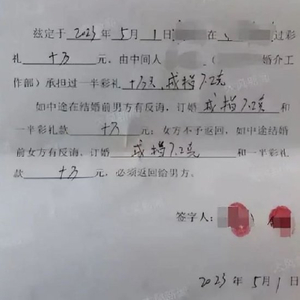 兹定于 2023 年 5 月 1 日 在 过彩
礼 十万 元,由中间人 ( 婚介工
作部)承担过一半彩礼 十万元,戒指7.2克
如中途在结婚前男方有反诲,订婚 戒指7.2克 和
一半彩礼款 十万 元,女方不予返回,如中途结婚
前女方有反诲,订婚 戒指7.2克 和一半彩礼
款 十万 元,必须返回给男方。
签字人:
2023 年 5 月 1 日